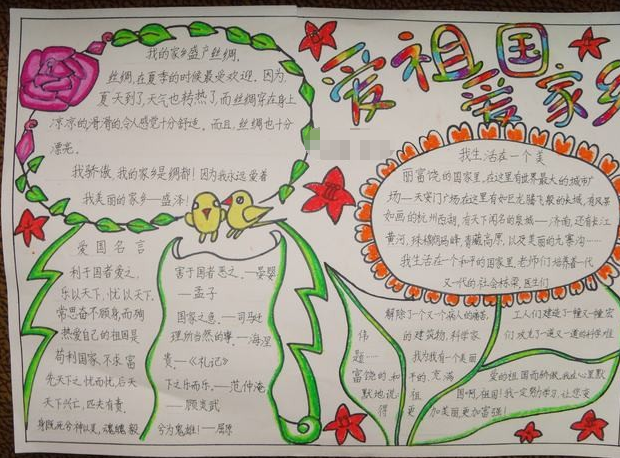 我的家乡盛产丝绸,
丝绸,在夏季的时候最受欢迎。因为
夏天到了,天气也转热了,而丝绸穿在身上
凉凉的,滑滑的,令人感觉十分舒适。而且,丝绸也十分
漂亮。
我骄傲,我的家乡是绸都!因为我永远爱着
我美丽的家乡——盛泽!
爱祖国
爱家乡
我生活在一个美
丽富饶的国家里,在这里有世界最大的城市广
场——天安门广场,在这里有如巨龙腾飞般的长城,有风景
如画的杭州西湖,有天下闻名的泉城——济南,还有长江
黄河,珠穆朗玛峰,青藏高原,以及美丽的九寨沟……
我生活在一个和平的国家里,老师们培养着一代
又一代的社会栋梁,医生们
爱国名言
利于国者爱之,
害于国者恶之。——晏婴
乐以天下,忧以天下。
——孟子
常思奋不顾身,而殉
国家之急。——司马迁
热爱自己的祖国是
理所当然的事。——海涅
苟利国家,不求富
贵。——《礼记》
先天下之忧而忧,后天
下之乐而乐。——范仲淹
天下兴亡,匹夫有责。
——顾炎武
身既死兮神以灵,魂魄毅
兮为鬼雄!——屈原
解除了一个又一个病人的痛苦,
工人们建造了一幢又一幢宏
伟
的建筑物,科学家
们攻克了一道又一道的科学难
题……
我为我有一个美丽
富饶的,和
平的,充满
爱的祖国而骄傲,我在心里默
默地说
祖
国啊,祖国!我一定努力学习,让您变
得
更
加美丽更加富强!